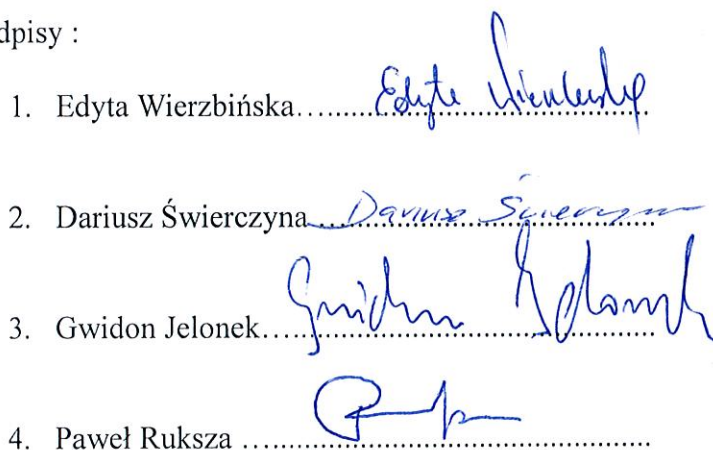 dpisy :
1. Edyta Wierzbińska.... Edyta
2. Dariusz Świerczyna.... Dariusz Świerczyna
3. Gwidon Jelonek.... Gwidon Jelonek
4. Paweł Ruksza ....